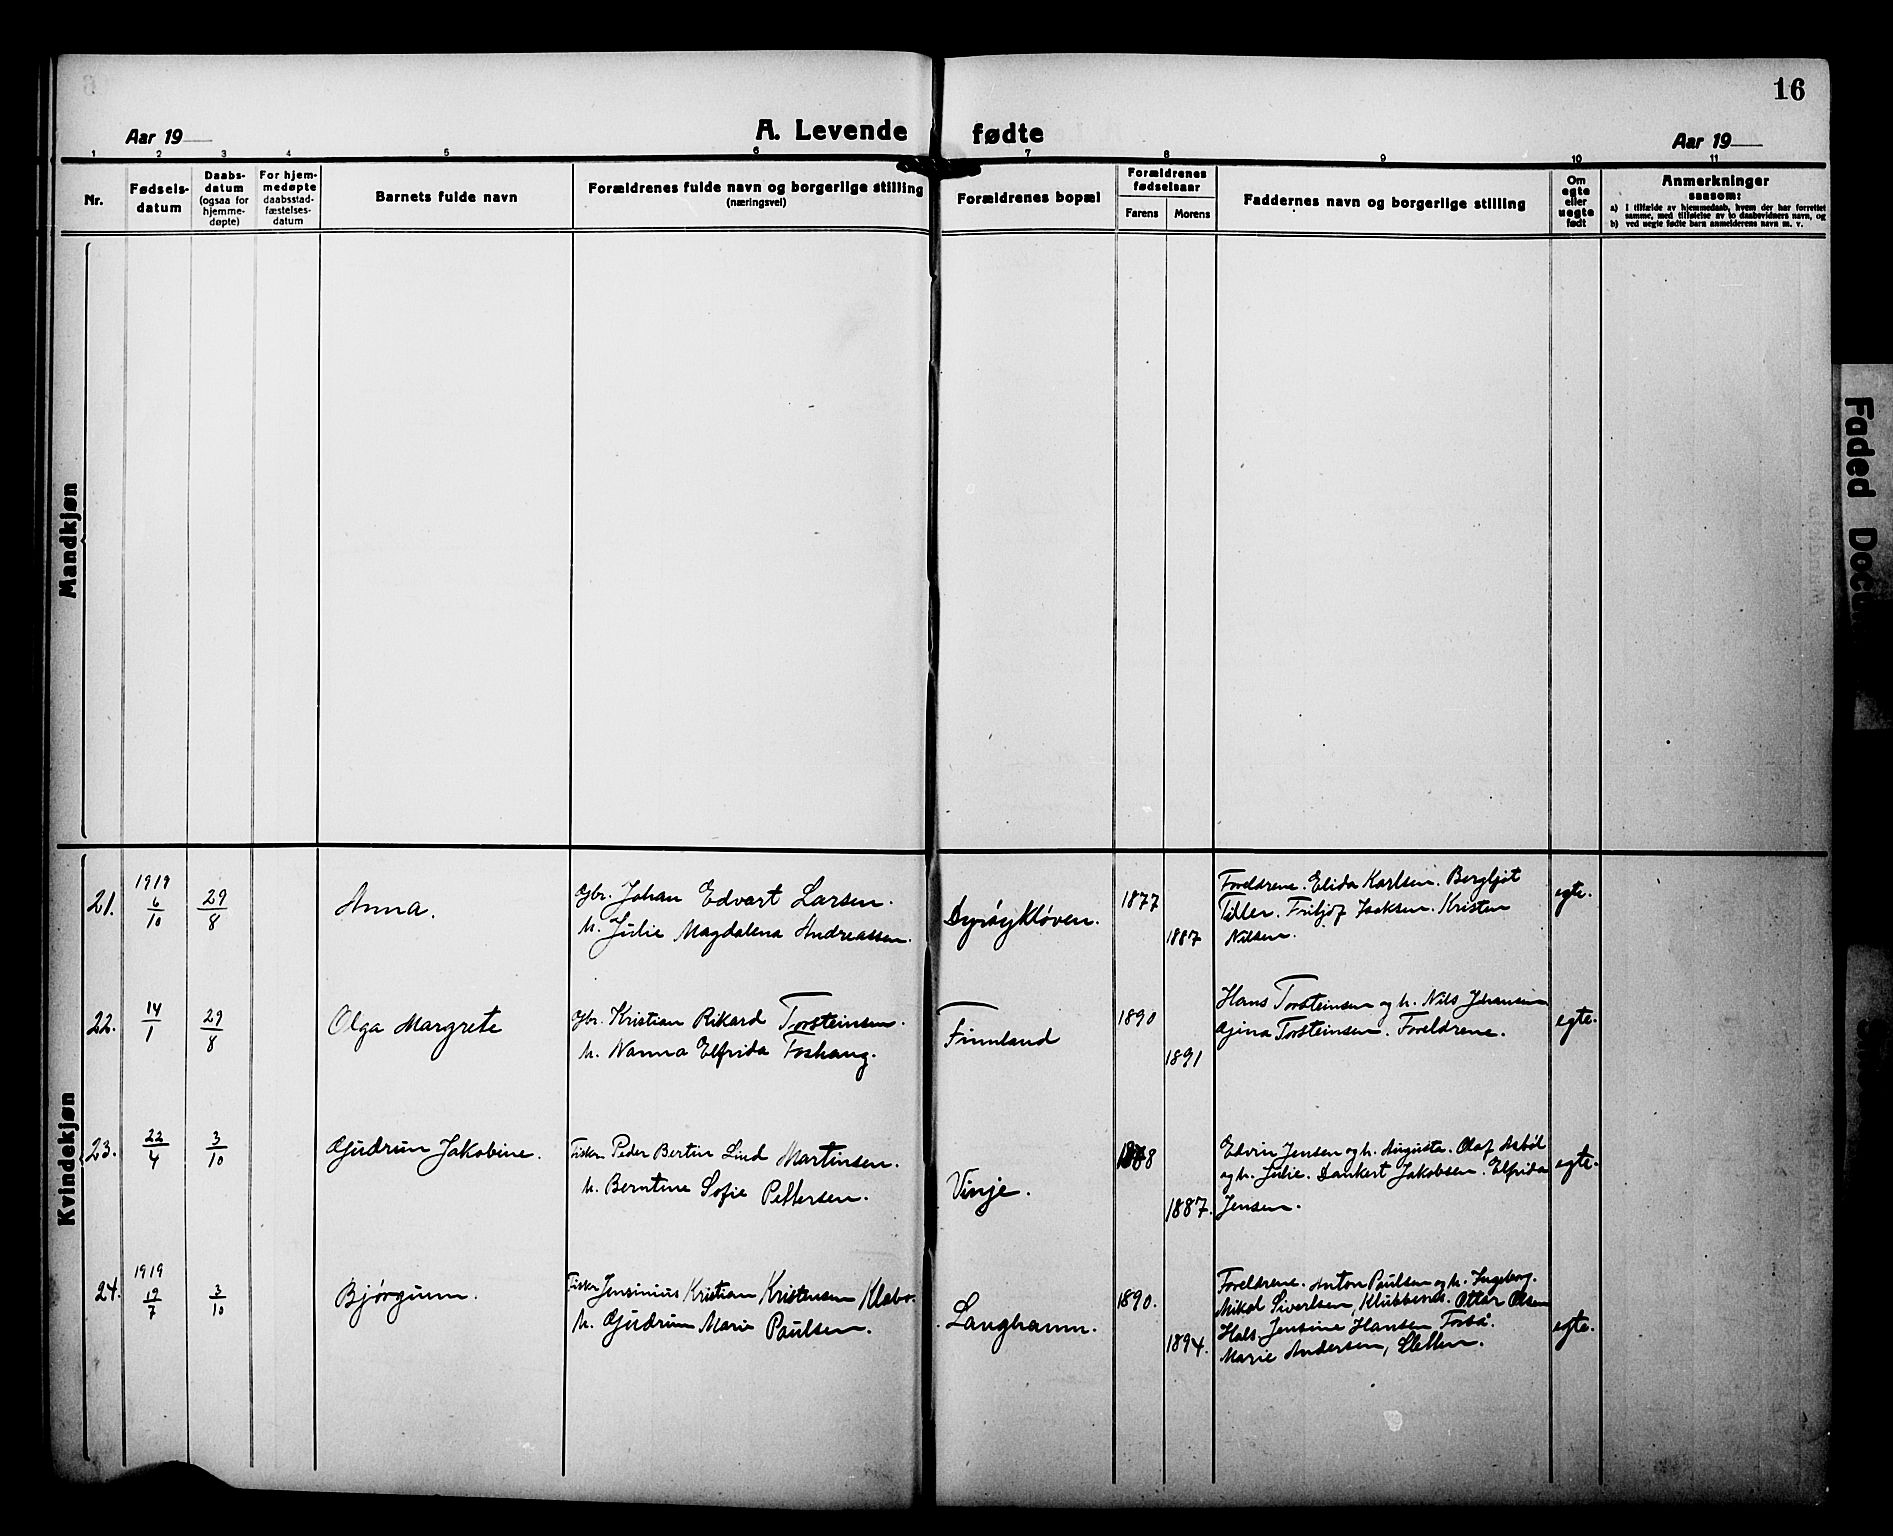 16
Aar 19
A. Levende fødte
Aar 19
1 2 3 4 5 6 7 8 9 10 11
Nr.
Fødsels-
datum
Daabs-
datum
(ogsaa for
hjemme-
døpte)
For hjem-
medøpte
daabsstad-
fæstelses-
datum
Barnets fulde navn
Forældrenes fulde navn og borgerlige stilling
(næringsvei)
Forældrenes bopæl
Forældrenes
fødselsaar
Farens
Morens
Faddernes navn og borgerlige stilling
Om
egte
eller
uegte
født
Anmerkninger
saasom:
a) I tilfælde av hjemmedaab, hvem der har forrettet
samme, med tilføielse av to daabsvidners navn, og
b) ved uegte fødte barn anmelderens navn m. v.
Mandkjøn
Kvindekjøn
21.
1919
6/10
29/8
Anna.
Gbr. Johan Edvart Larsen.
h. Julie Magdalena Andreassen.
Dyrøykløven.
1877
1887
Foreldrene. Elida Karlsen. Bergljot
Tiller. Fritjof Isaksen. Kristen
Nilsen.
egte.
22.
14/1
29/8
Olga Margrete
Gbr. Kristian Rikard Torsteinsen.
h. Nanna Elfrida Foshaug.
Finnland
1890
1891
Hans Torsteinsen og h. Nils Johansen
Gjina Torsteinsen. Foreldrene.
egte.
23.
22/4
3/10
Gjudrun Jakobine.
Fisker Peder Bertin Lind Martinsen.
h. Berntine Sofie Pettersen.
Vinje.
1888
1887.
Edvin Jensen og h. Augusta. Olaf Aabøl
og h. Julie. Dankert Jakobsen. Elfrida
Jensen.
egte.
24.
1919
19/7
3/10
Bjørgunn.
Fisker Jensinius Kristian Kristensen Klæbo.
h. Gjudrun Marie Paulsen.
Langhamn.
1890.
1894.
Foreldrene. Anton Paulsen og h. Ingeborg.
Mikal Sivertsen, Klubbenes. Ottar Olsen
Hals. Jensine Hansen Forså.
Marie Andersen, Sletten.
egte.
Faded Docu